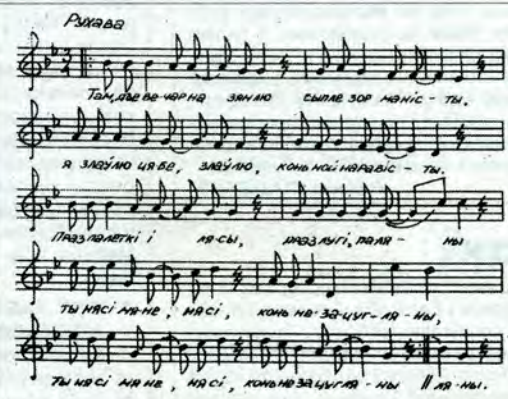 Рухава
Там, дзе вечар на зямлю сыпле зор маніс - ты.
я злаўлю цябе, злаўлю, конь мой наравіс - ты.
Праз палеткі і ля-сы, праз лугі, паля - ны
ты нясі мяне, нясі, конь не-за-цуг-ля-ны,
ты нясі мяне, нясі, конь незацугля - ны ля-ны.